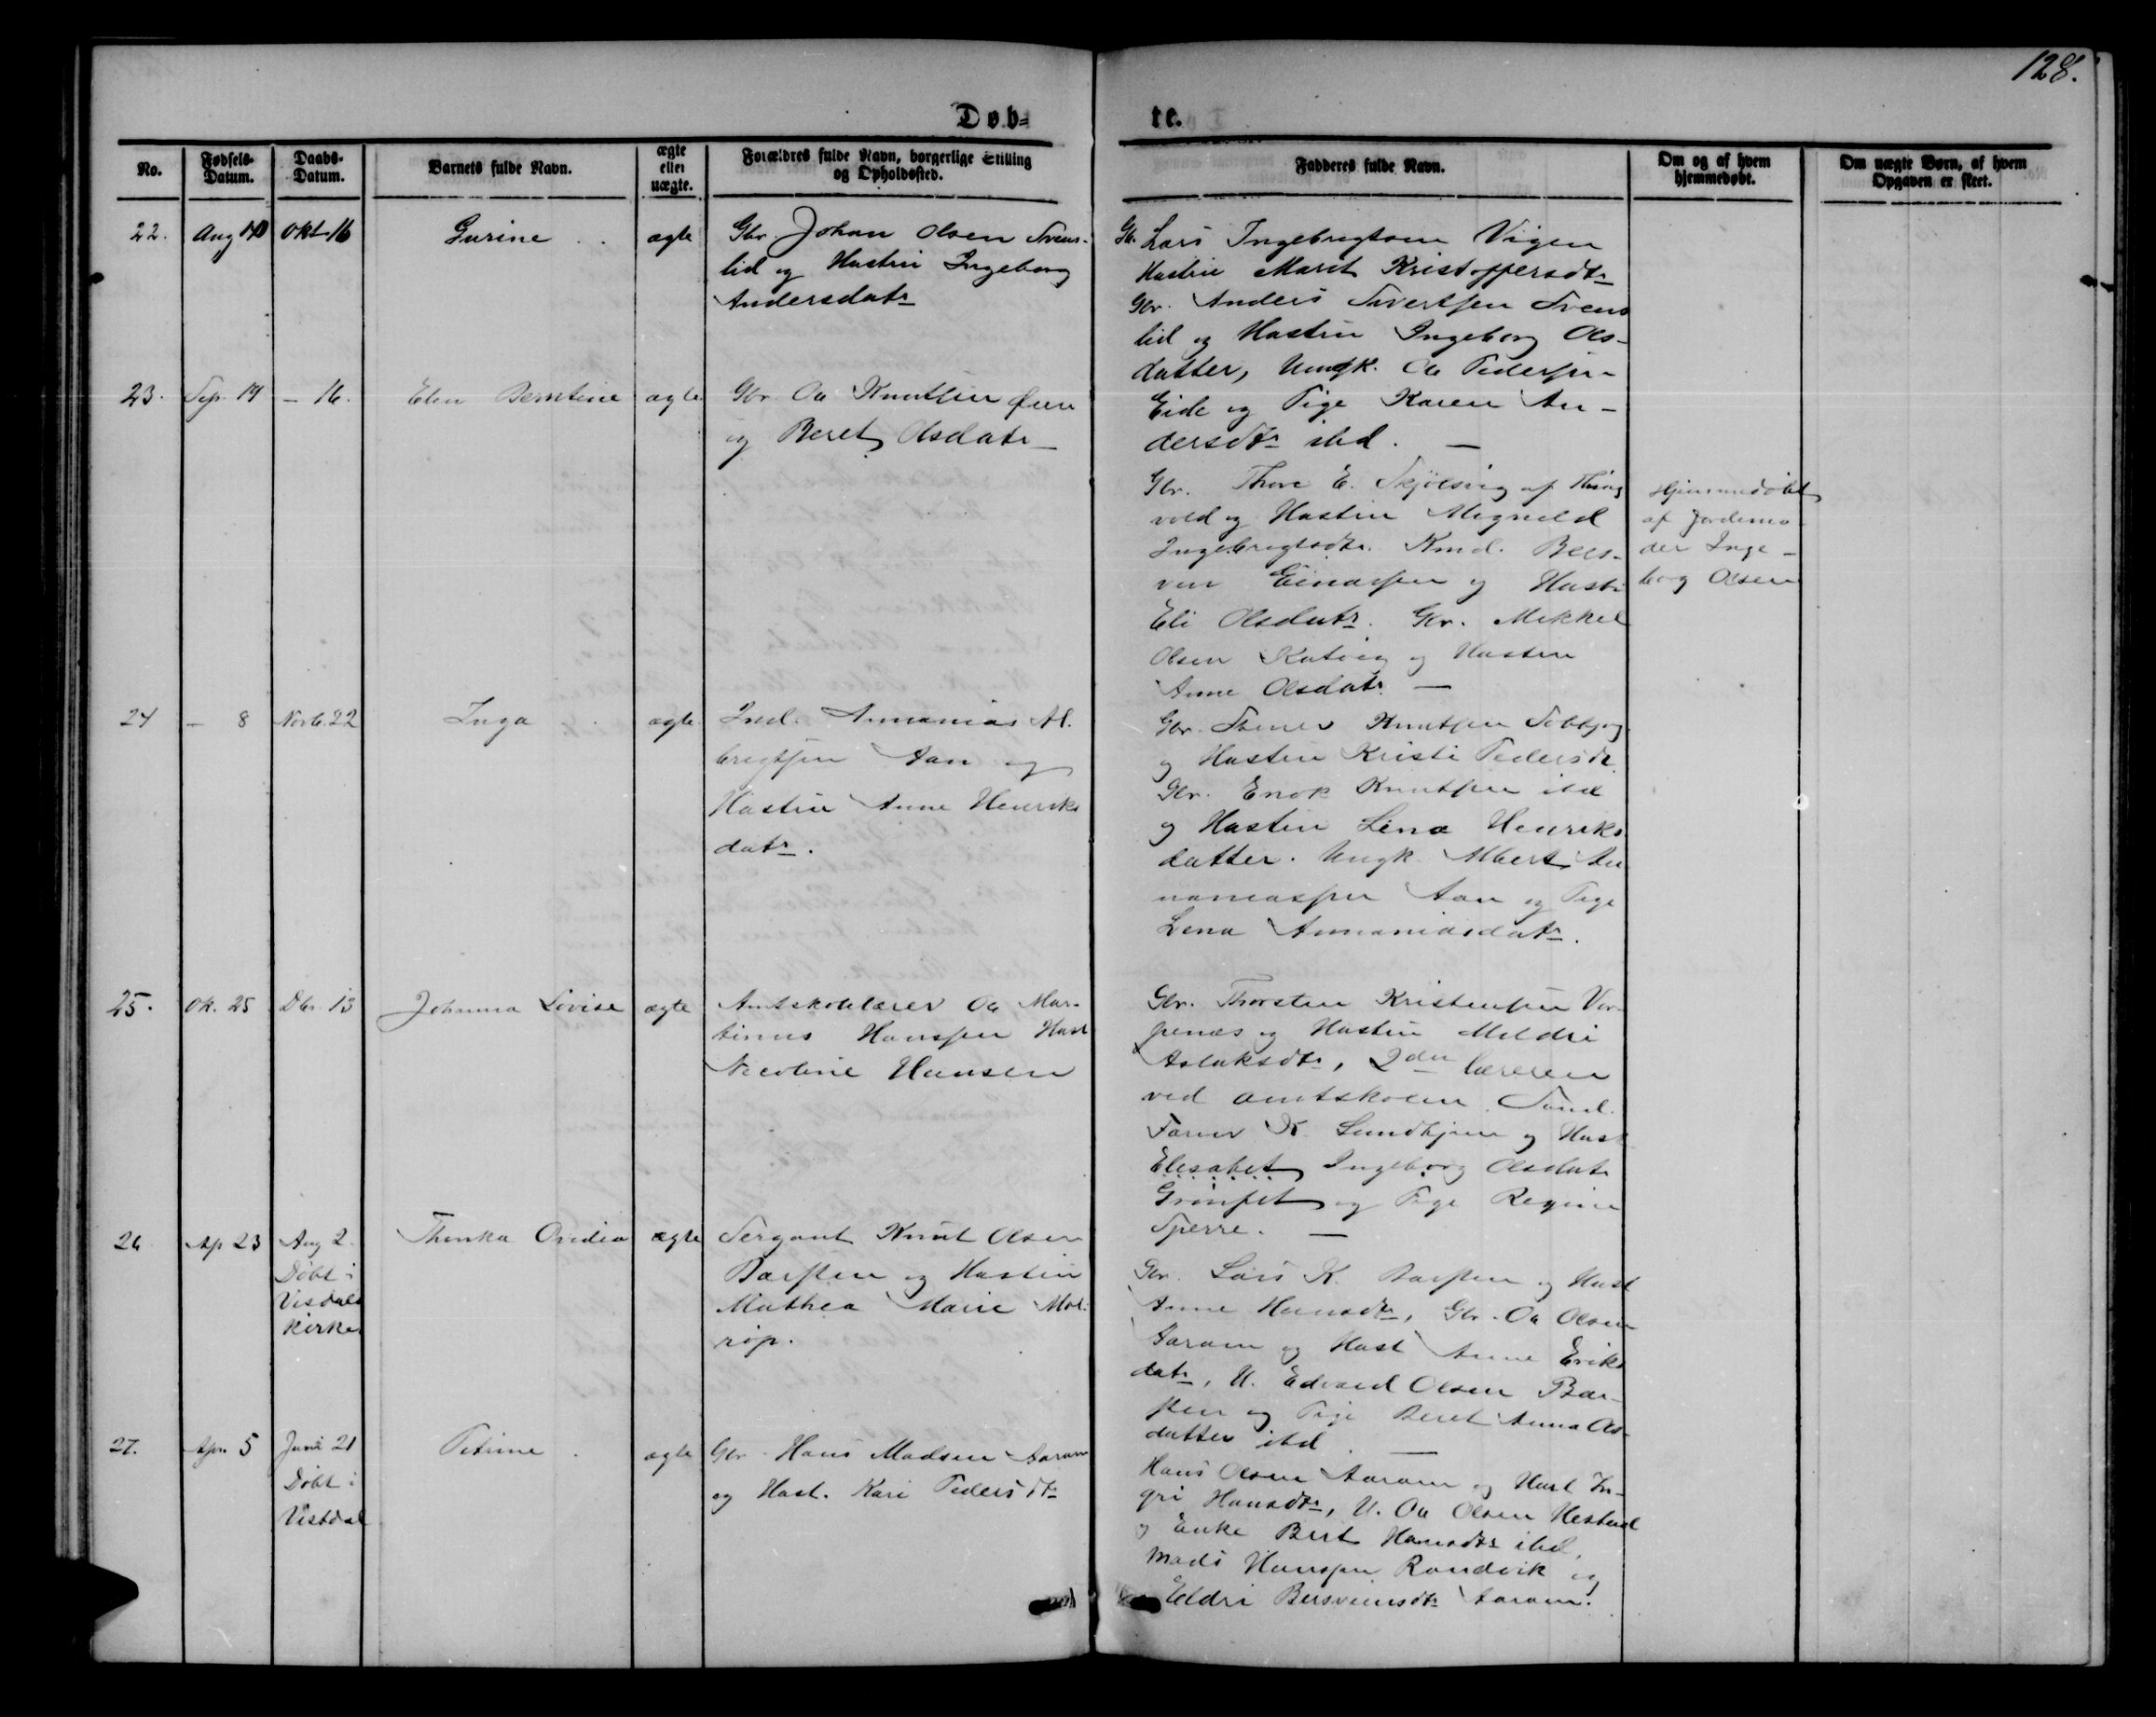 128.
Døb-
te.
No.
Fødsels-
Datum.
Daabs-
Datum.
Barnets fulde Navn.
ægte
eller
uægte.
Forældres fulde Navn, borgerlige Stilling
og Opholdssted.
Fadderes fulde Navn.
Om og af hvem
hjemmedøbt.
Om uægte Børn, af hvem
Opgaven er skeet.
22.
Aug
Okt 16
Gurine
ægte
Gbr. Johan Olsen Svens-
lid og Hustru Ingeborg
Andersdatr
Gb. Lars Ingebrigtsen Vigen
Hustru Marit Kristoffersdtr
Gbr. Anders Sivertsen Svens
lid og Hustru Ingeborg Ols-
datter, Ungk. Ole Pedersen
Eide og Pige Karen An-
dersdtr ibd. —
23.
Sep. 14
— 16.
Elen Berntine
ægte
Gbr. Ole Knutsen Øren
og Beret Olsdatr —
Gbr. Thore E. af
vold og Hustru Magnild
Ingebrigtsdtr. Kmd. Bers-
ven Einarsen og Hustr
Eli Olsdatr. Gbr. Mikkel
Olsen og Hustru
Anne Olsdatr —
Hjemmedøbt
af Jordemo
der Inge-
borg Olsen
24
— 8
Novb. 22
Inga
ægte
Ind. Annanias Al-
brigtsen Aan og
Hustru Anne Henriks
datr.
Gbr. Knutsen
og Hustru Kristi Pedersdtr
Gbr. Enok Knutsen ibd
og Hustru Lina Henriks
datter. Ungk. Albert An
naniassen Aan og Pige
Lena Annaniasdatr.
25.
Ok. 25
Dbr. 13
Johanna Lovise
ægte
Amtskolelærer Ole Mar-
tinus Hanssen Hust
Nicoline Hansen
Gbr. Thorsten Kristensen Vor-
penæs og Hustru Meldri
Aslaksdtr, 2den læreren
ved amtskolen
K. og Hust
Elisabet Ingeborg Olsdatr
Grønset og Pige Regine
Sperre. —
26
Ap 23
Aug 2.
Døbt i
Visdals
kirke
Thinka Ovidia
ægte
Sergant Knut Olsen
Barsten og Hustru
Mathea Marie
Gbr. Lars K. Barsten og Hust
Anne Hansdtr, Gbr. Ole Olsen
Aaram og Hust Anne Eriks
datr, U. Edvard Olsen Bar-
sten og Pige Beret Anna Ols-
datter ibd. —
27.
Apr. 5
Juni 21
Døbt i
Vistdal
Petrine
ægte
Gbr. Hans Madsen Aaram
og Hust. Kari Pedersdtr
Hans Olsen Aaram og Hust In-
gri Hansdtr, U. Ole Olsen
og Enke Berit Hansdtr ibd,
Mads Hanssen Randvik og
Eldri Bersveinsdtr Aaram.